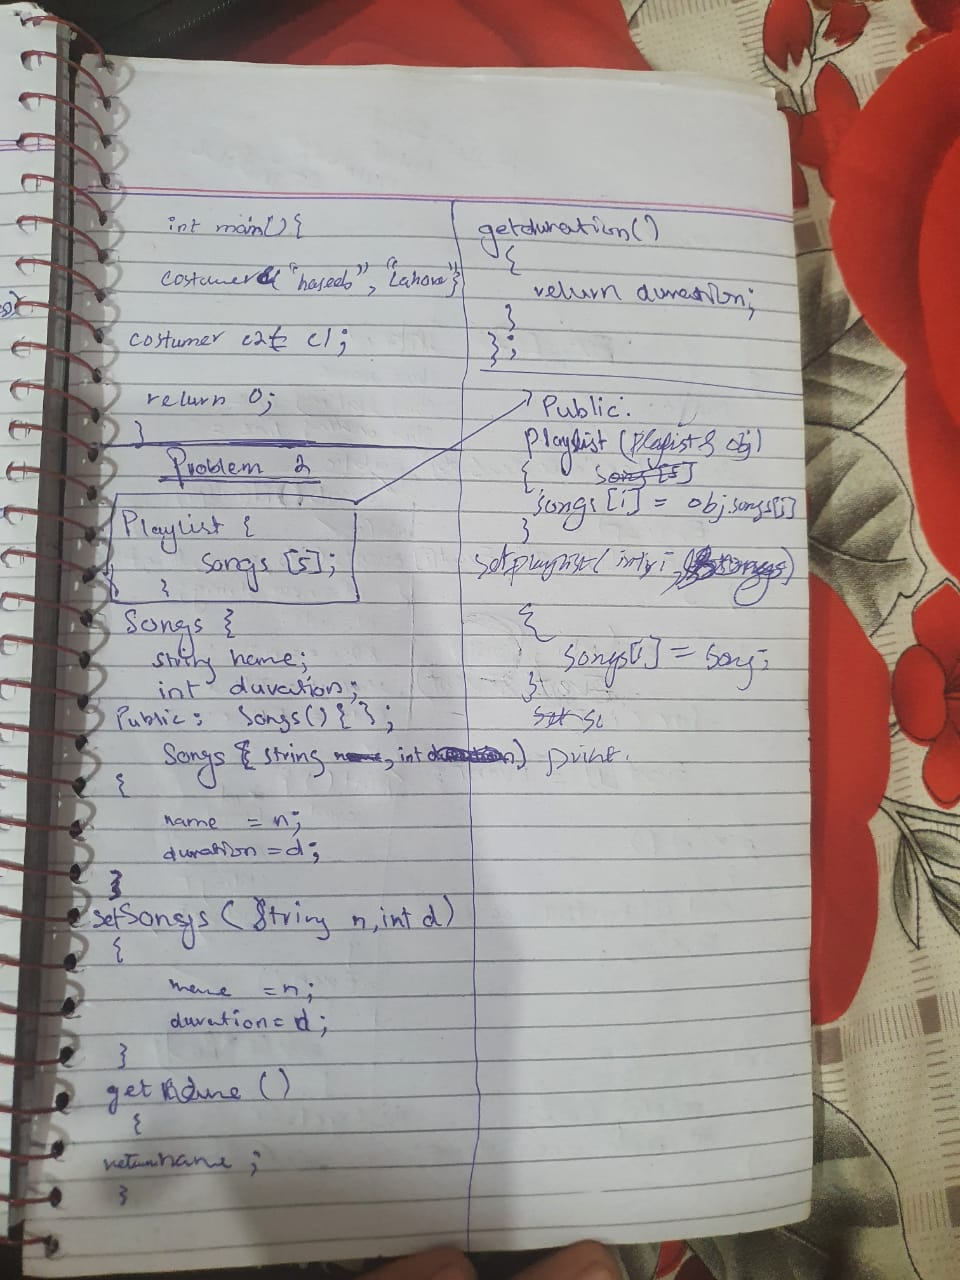 int main() {
costumer "haseeb", "Lahore"}
costumer c2 c1;
return 0;
}
Problem 2
Playlist {
songs [5];
}
Songs {
string name;
int duration;
Public: Songs() { };
Songs { string name, int duration)
{
name = n;
duration = d;
}
setSongs (String n, int d)
{
name = n;
duration = d;
}
get ()
{
return name ;
}
getduration()
{
return duration;
}
};
Public:
Playlist (Playlist & obj)
{ Song [5]
songs [i] = obj.songs[i]
}
setplaylist( int i,
{
songs[i] = song;
}
print.